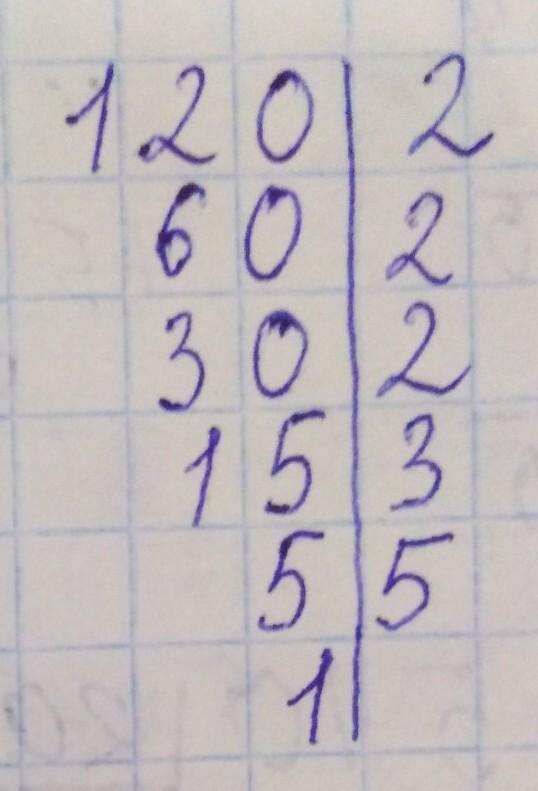 120 | 2
60 | 2
30 | 2
15 | 3
5 | 5
1 |